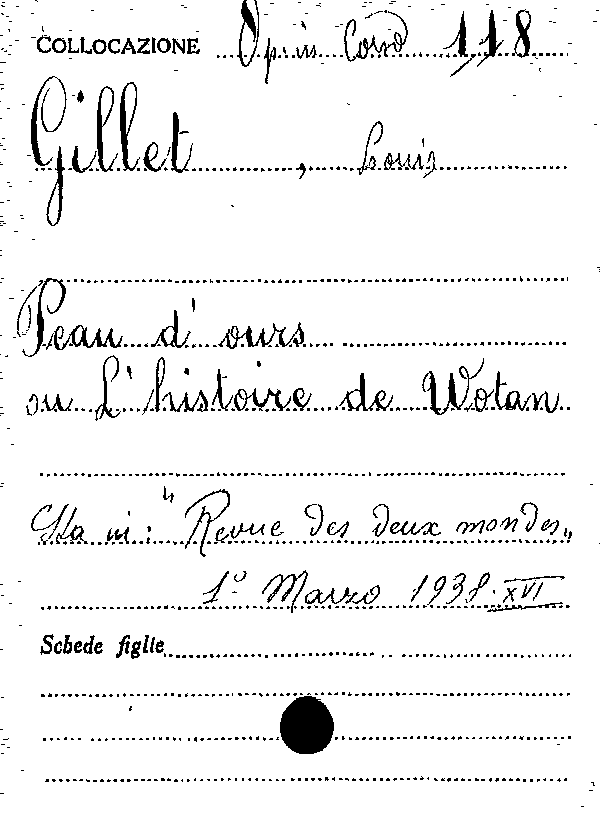 COLLOCAZIONE Op. in Cons 118
Gillet, Louis
Peau d'ours
ou L'histoire de Wotan
Sta in: "Revue des deux mondes„
1º Marzo 1938.XVI
Schede figlie